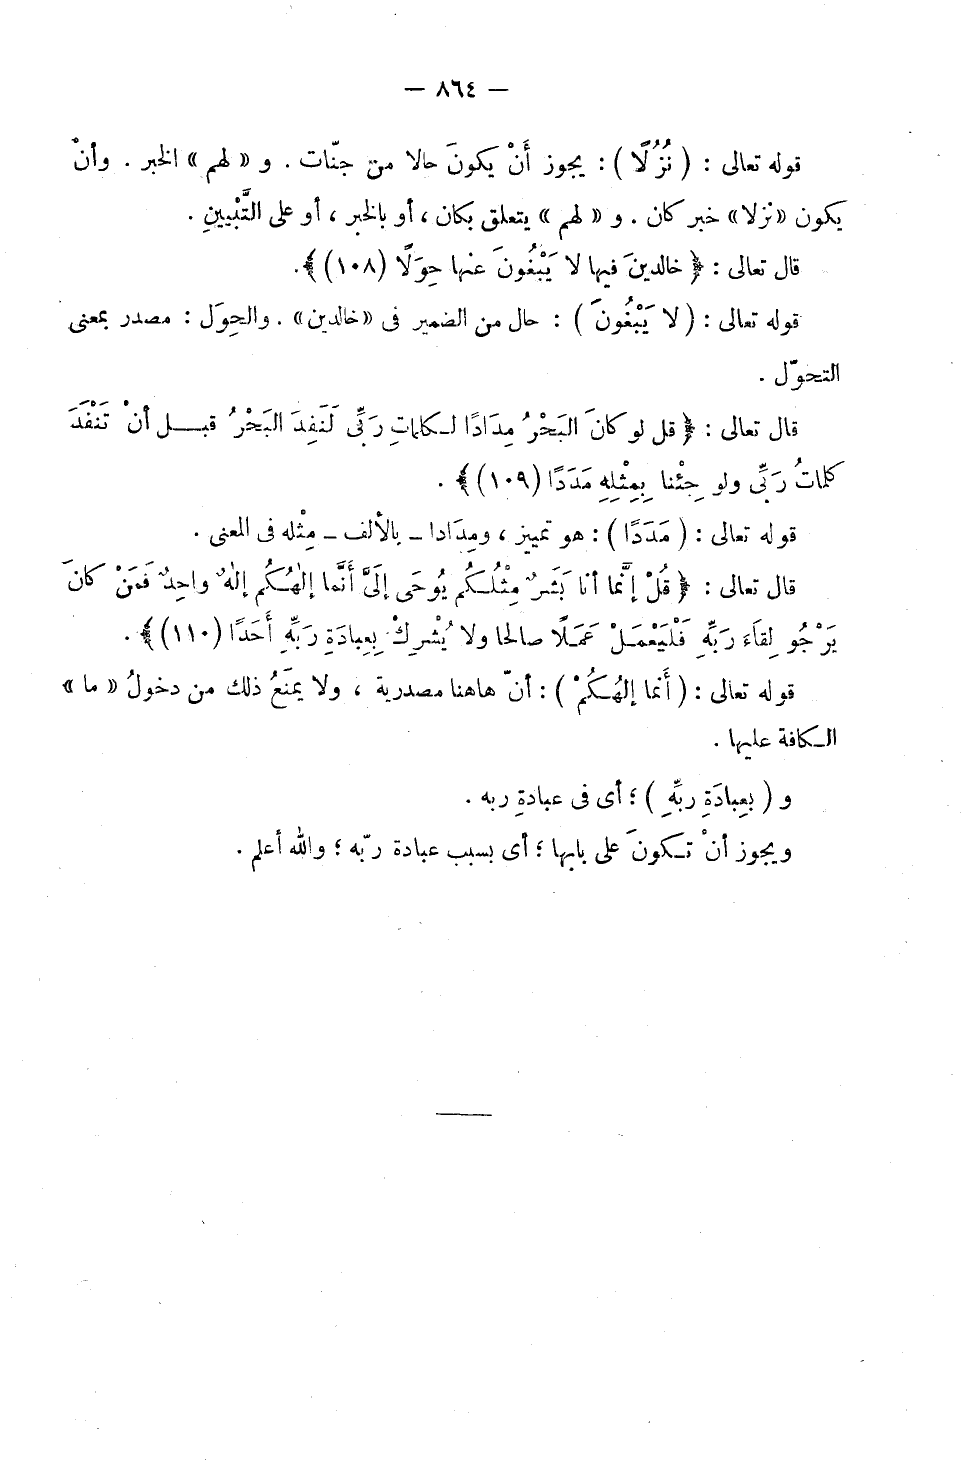 — ٨٦٤ —
قوله تعالى : ( نُزُلًا ) : يجوز أَنْ يكونَ حالا من جنّات . و « لهم » الخبر . وأنْ
يكون «نزلا» خبر كان . و « لهم » يتعلق بكان ، أو بالخبر ، أو على التَّبْيينِ .
قال تعالى : ﴿ خالدينَ فيها لا يَبْغُونَ عنها حِوَلًا (١٠٨) ﴾.
قوله تعالى : ( لا يَبْغُونَ ) : حال من الضمير فى «خالدين» . والحِوَل : مصدر بمعنى
التحوّل .
قال تعالى : ﴿ قل لو كانَ البَحْرُ مِدَادًا لكلماتِ رَبِّى لَنَفِدَ البَحْرُ قبل أنْ تَنْفَدَ
كلماتُ رَبِّى ولو جِئْنا بِمِثْلِهِ مَدَدًا (١٠٩) ﴾ .
قوله تعالى : ( مَدَدًا ) : هو تمييز ، ومِدَادا ـ بالألف ـ مِثْله فى المعنى .
قال تعالى : ﴿ قُلْ إنَّما أنا بَشَرٌ مِثْلُكُم يُوحَى إلَىَّ أَنَّما إلٰهُكُم إلٰهٌ واحِدٌ فَمَنْ كانَ
يَرْجُو لِقاءَ رَبِّهِ فَلْيَعْمَلْ عَمَلًا صالحا ولا يُشْرِكْ بِعِبادَةِ رَبِّهِ أَحَدًا (١١٠) ﴾ .
قوله تعالى : ( أَنما إلهُكُمْ ) : أنّ هاهنا مصدرية ، ولا يمنَعُ ذلك من دخولُ « ما »
الكافة عليها .
و ( بعِبادَةِ ربِّهِ ) ؛ أى فى عبادةِ ربه .
ويجوز أنْ تكونَ على بابها ؛ أى بسبب عبادة ربّه ؛ والله أعلم .